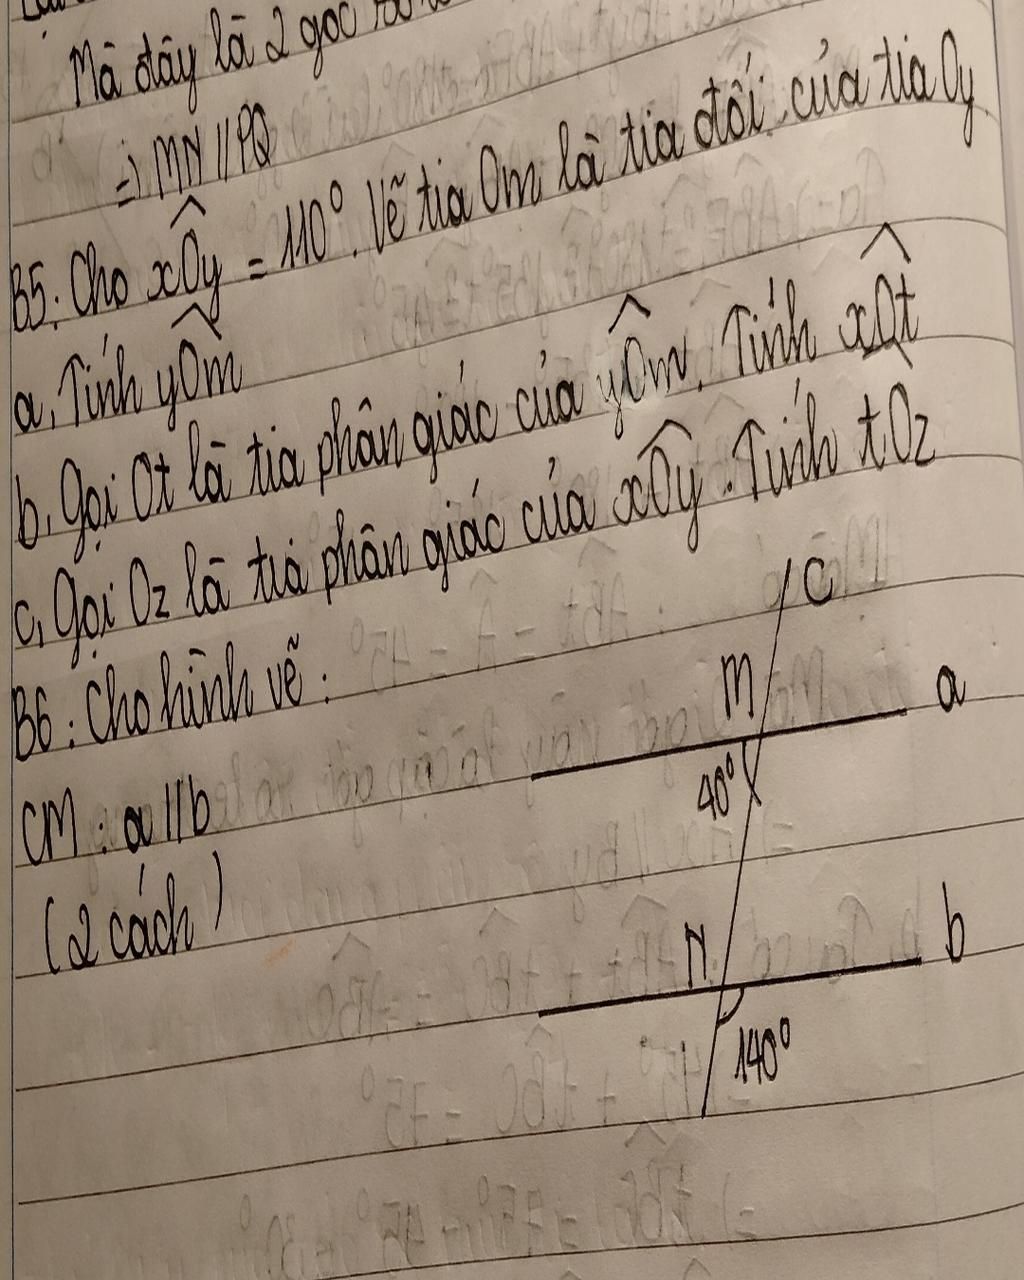 Mà đây là 2 góc
=) MN // PQ
B5: Cho xÔy = 110°. Vẽ tia Om là tia đối của tia Oy
a, Tính yÔm
b, Gọi Ot là tia phân giác của yÔm. Tính xÔt
c, Gọi Oz là tia phân giác của xÔy. Tính tÔz
B6: Cho hình vẽ:
C
M
a
40°
CM: a // b
(2 cách)
N
b
140°